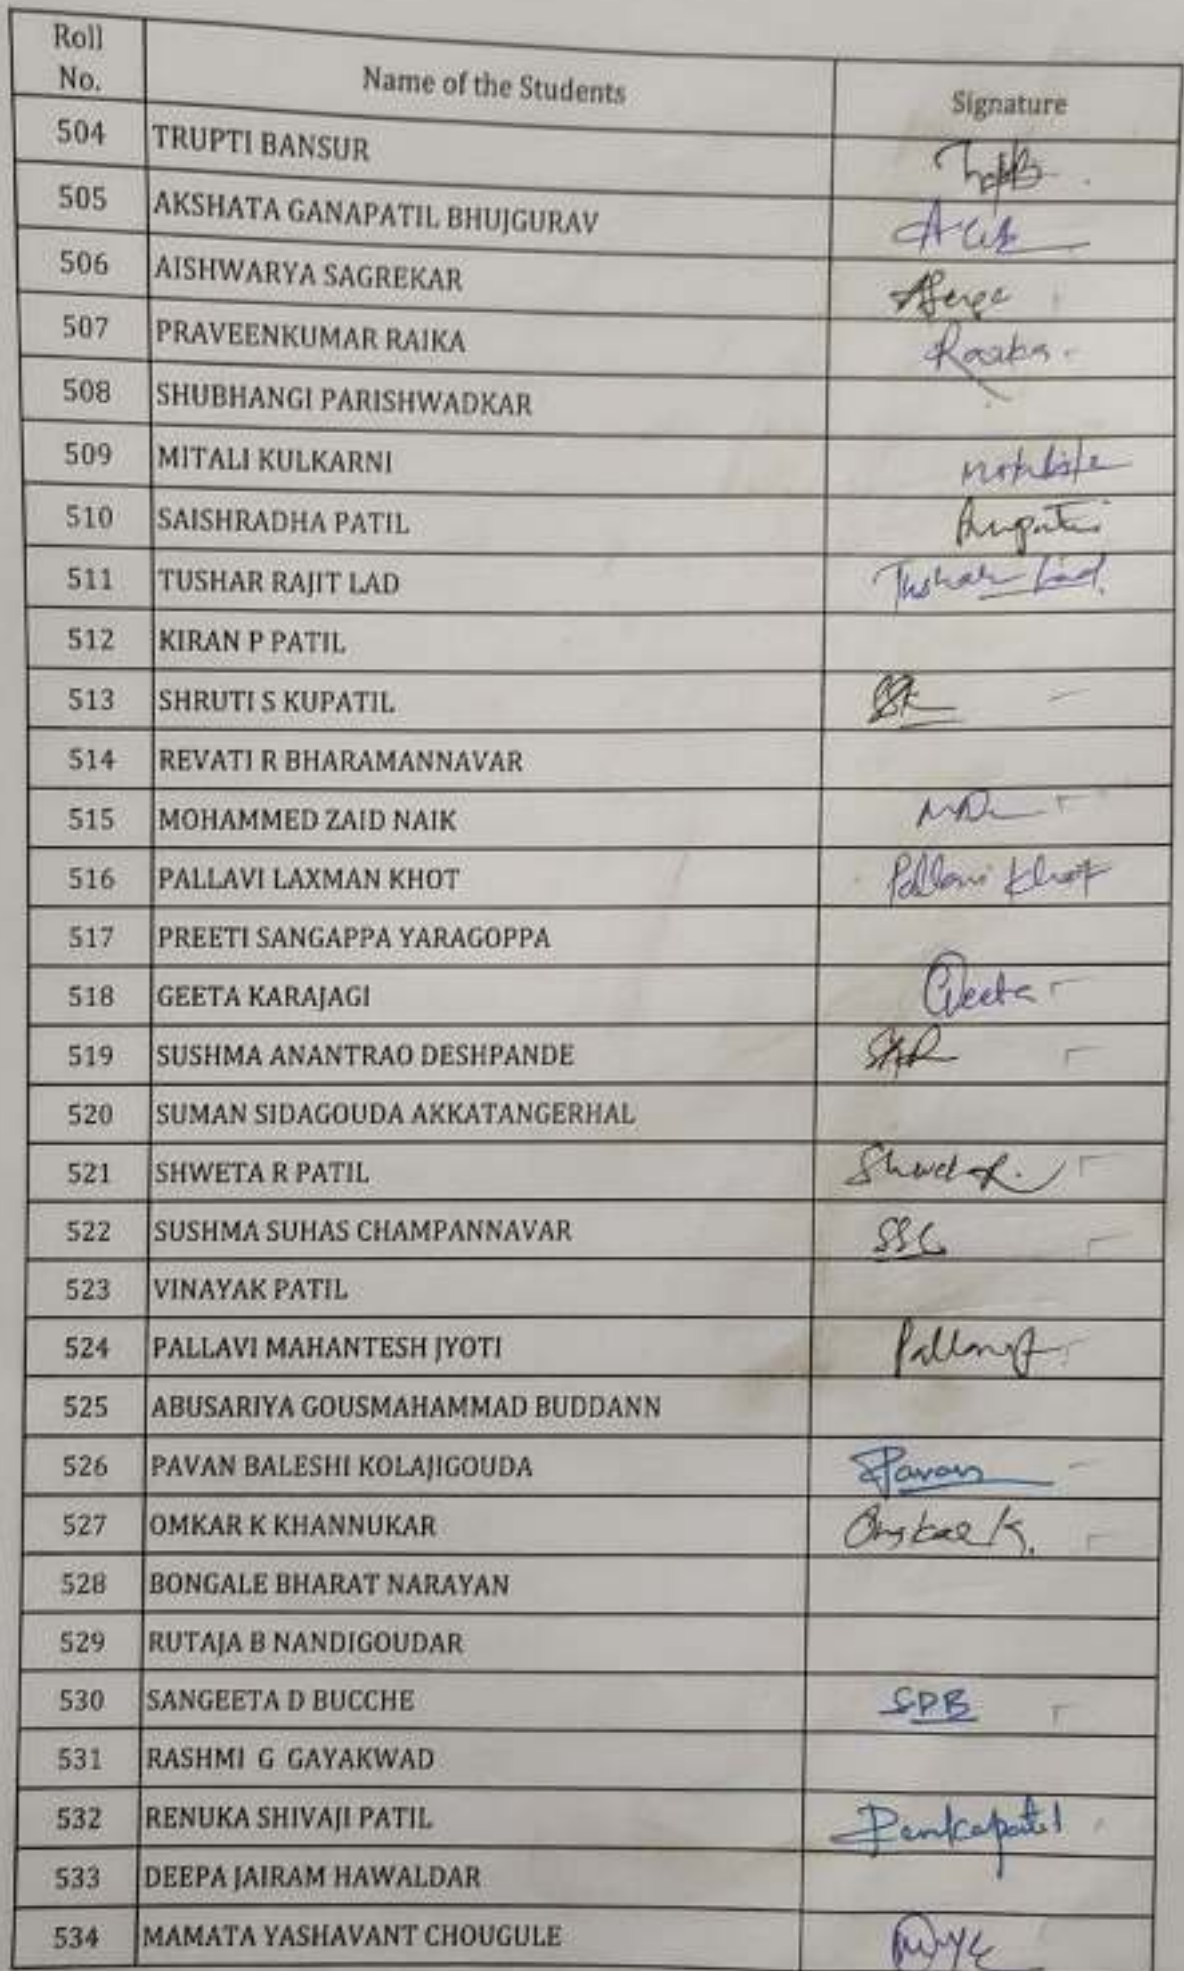 Roll No. Name of the Students Signature
504 TRUPTI BANSUR
505 AKSHATA GANAPATIL BHUJGURAV
506 AISHWARYA SAGREKAR
507 PRAVEENKUMAR RAIKA
508 SHUBHANGI PARISHWADKAR
509 MITALI KULKARNI
510 SAISHRADHA PATIL
511 TUSHAR RAJIT LAD Tushar Lad
512 KIRAN P PATIL
513 SHRUTI S KUPATIL SSK
514 REVATI R BHARAMANNAVAR
515 MOHAMMED ZAID NAIK
516 PALLAVI LAXMAN KHOT Pallavi Khot
517 PREETI SANGAPPA YARAGOPPA
518 GEETA KARAJAGI Geeta
519 SUSHMA ANANTRAO DESHPANDE
520 SUMAN SIDAGOUDA AKKATANGERHAL
521 SHWETA R PATIL
522 SUSHMA SUHAS CHAMPANNAVAR SSC
523 VINAYAK PATIL
524 PALLAVI MAHANTESH JYOTI
525 ABUSARIYA GOUSMAHAMMAD BUDDANN
526 PAVAN BALESHI KOLAJIGOUDA Pavan
527 OMKAR K KHANNUKAR Omkar K.
528 BONGALE BHARAT NARAYAN
529 RUTAJA B NANDIGOUDAR
530 SANGEETA D BUCCHE SDB
531 RASHMI G GAYAKWAD
532 RENUKA SHIVAJI PATIL
533 DEEPA JAIRAM HAWALDAR
534 MAMATA YASHAVANT CHOUGULE